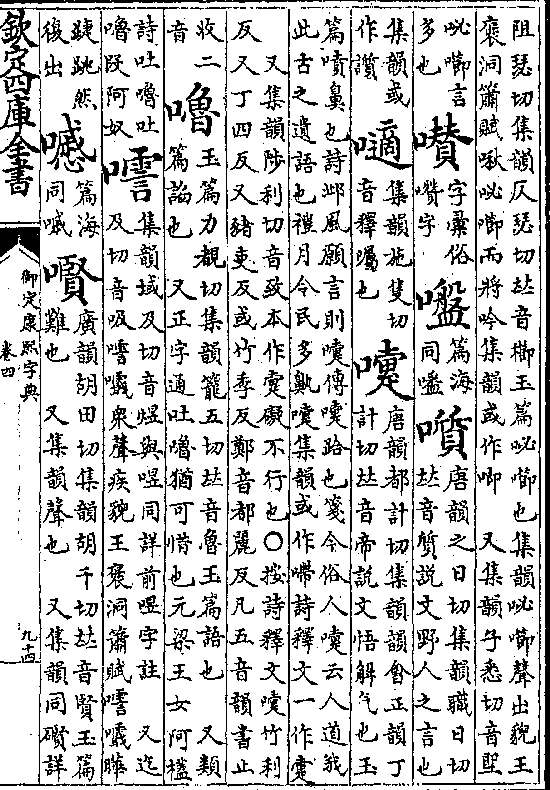 阻瑟切集韻仄瑟切𠀤音櫛玉篇咇㘉也集韻咇㘉聲出貌王
褒洞簫賦啾咇㘉而將吟集韻或作唧　又集韻子悉切音堲
咇㘉言
多也
字彙俗
囋字
篇海
同嚂
唐韻之日切集韻職日切
𠀤音質說文野人之言也
集韻或
作讚
集韻施隻切
音釋囑也
嚏
唐韻都計切集韻韻會正韻丁
計切𠀤音帝說文悟解气也玉
篇噴鼻也詩邶風願言則嚏傳嚏跲也箋今俗人嚏云人道我
此古之遺語也禮月令民多鼽嚏集韻或作嚔詩釋文一作疐
又集韻陟利切音致本作疐礙不行也〇按詩釋文嚏竹利
反又丁四反又豬吏反或竹季反鄭音都麗反凡五音韻書止
收二
音
嚕
玉篇力覩切集韻籠五切𠀤音魯玉篇語也　又類
篇諂也　又正字通吐嚕猶可惜也元梁王女阿𥜐
詩吐嚕吐
嚕段阿奴
集韻域及切音煜與喅同詳前喅字註　又迄
及切音吸衆聲疾貌王褒洞簫賦曄
踕跳然
後出
篇海
同嘁
廣韻胡田切集韻胡千切𠀤音賢玉篇
難也　又集韻聲也　又集韻同礥詳
欽定四庫全書
御定康熙字典
卷四
九十四